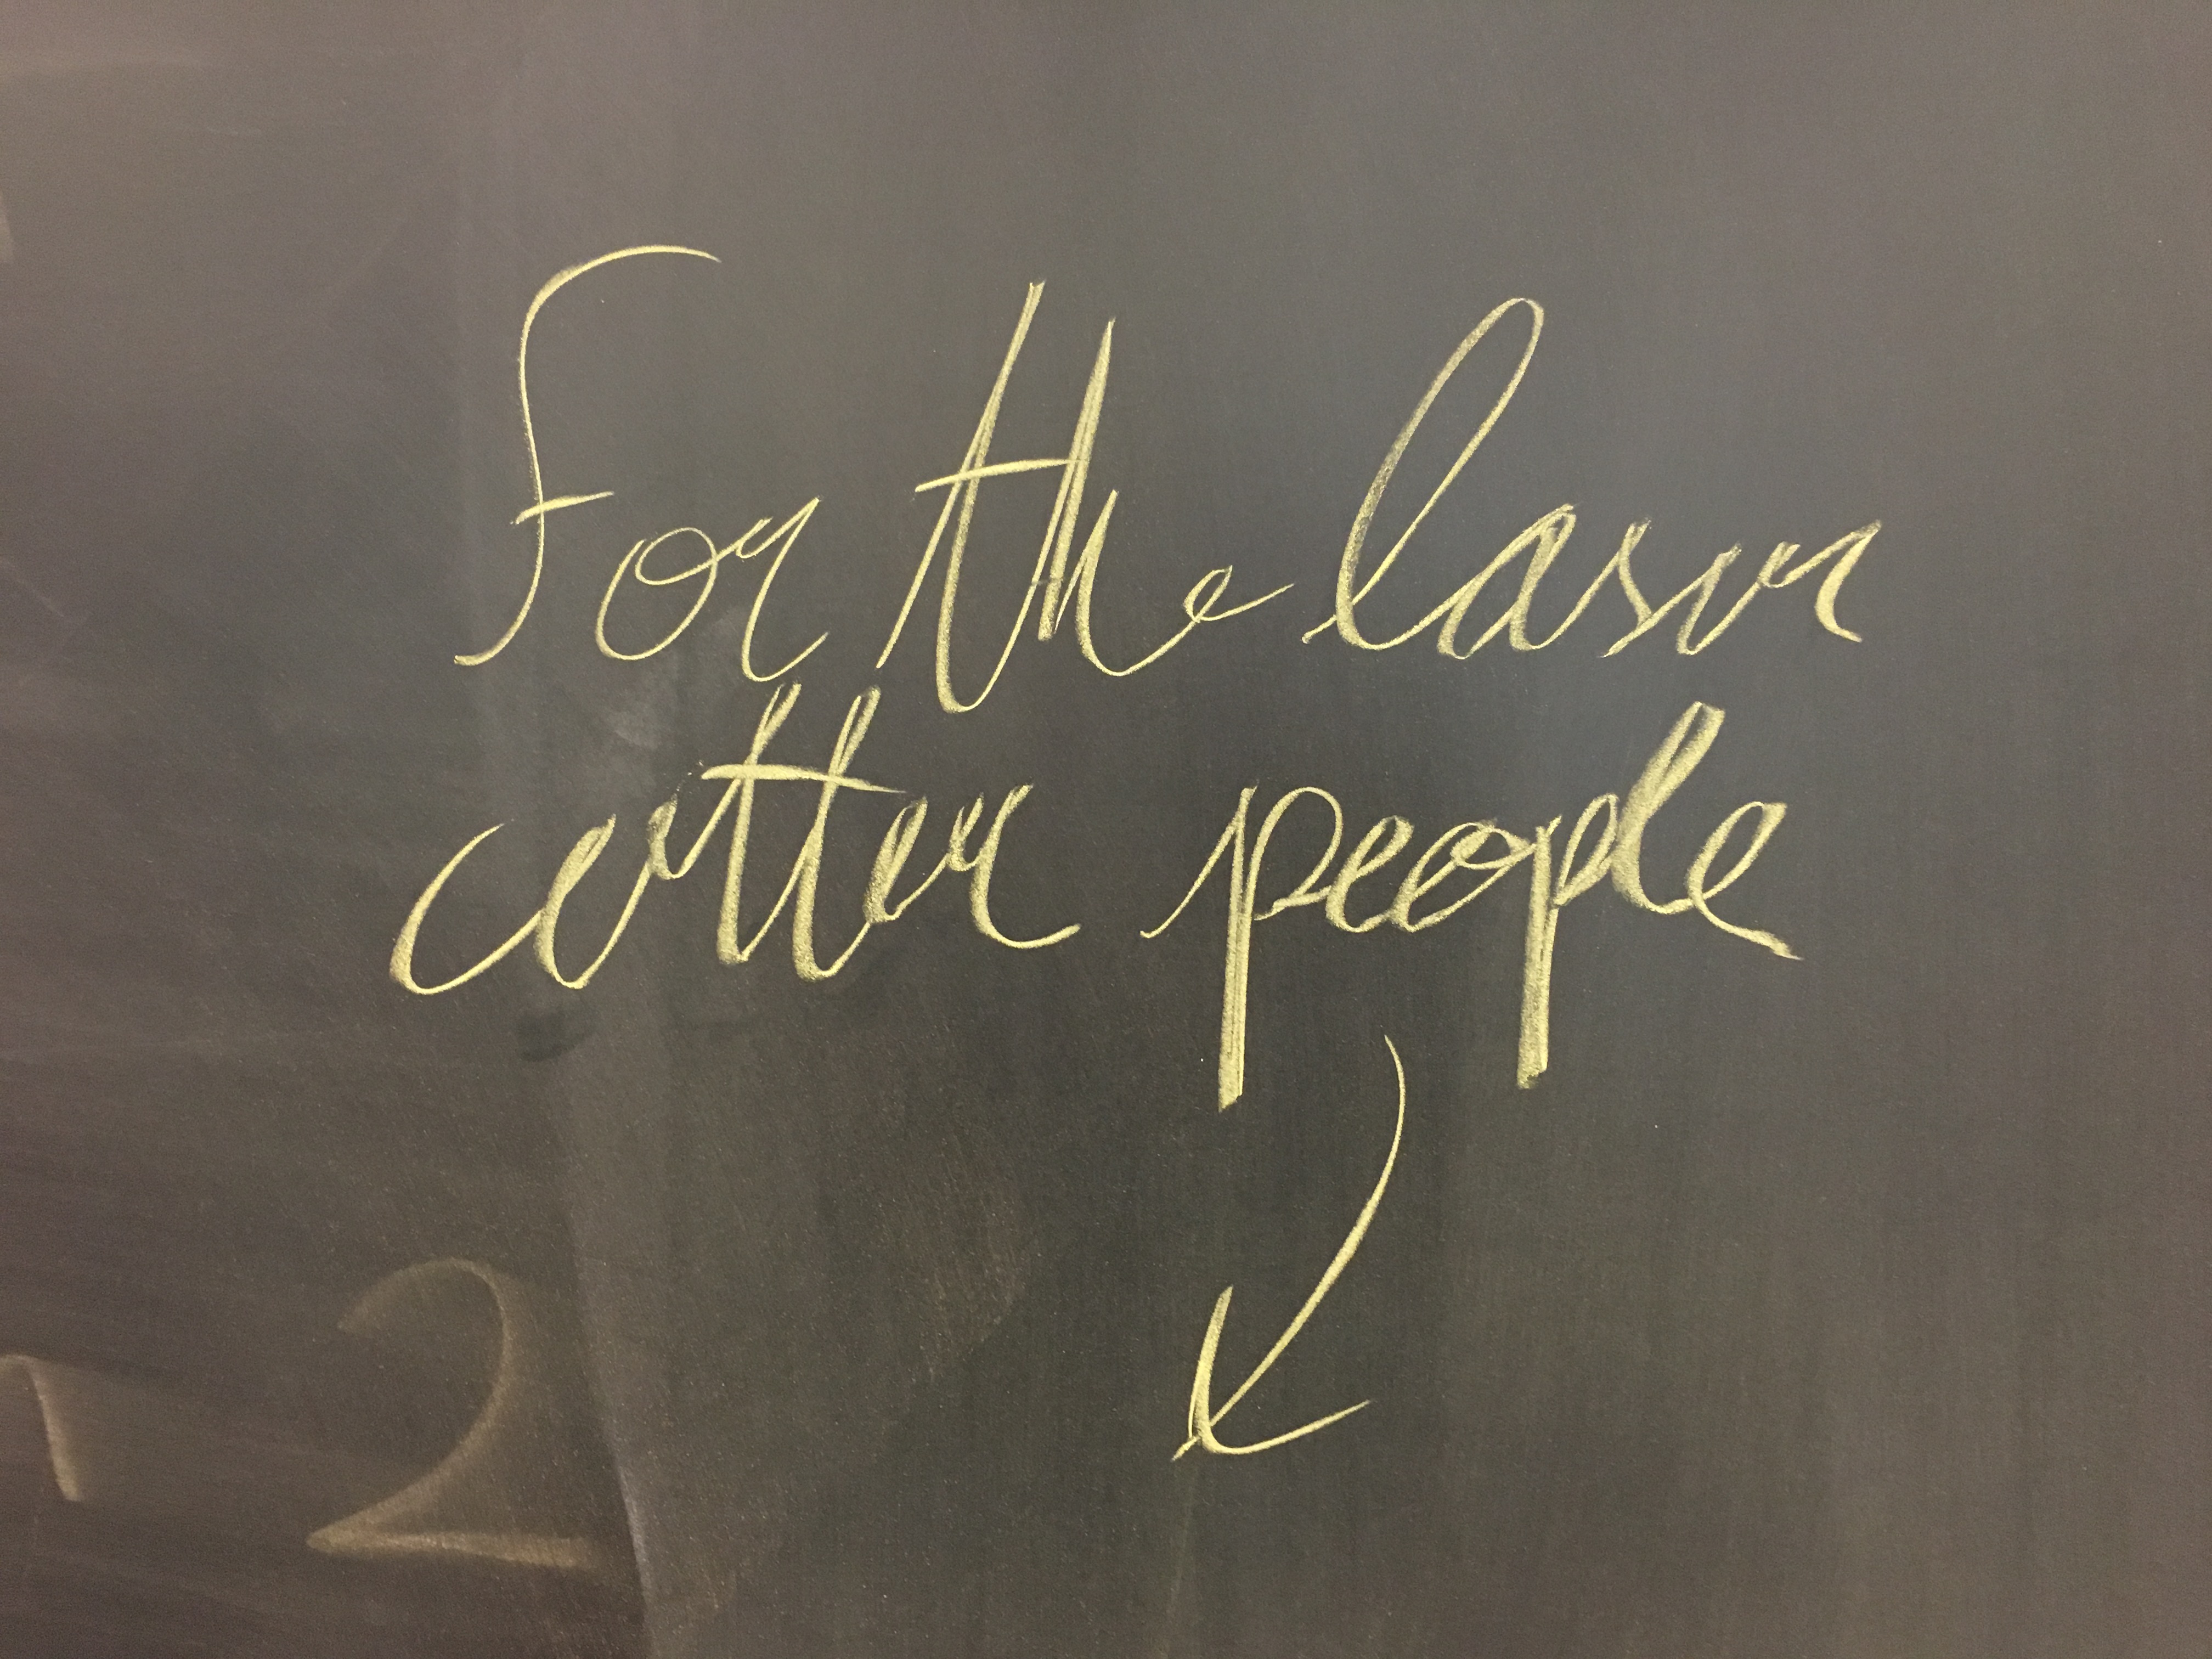 For the laser
cutter people
2